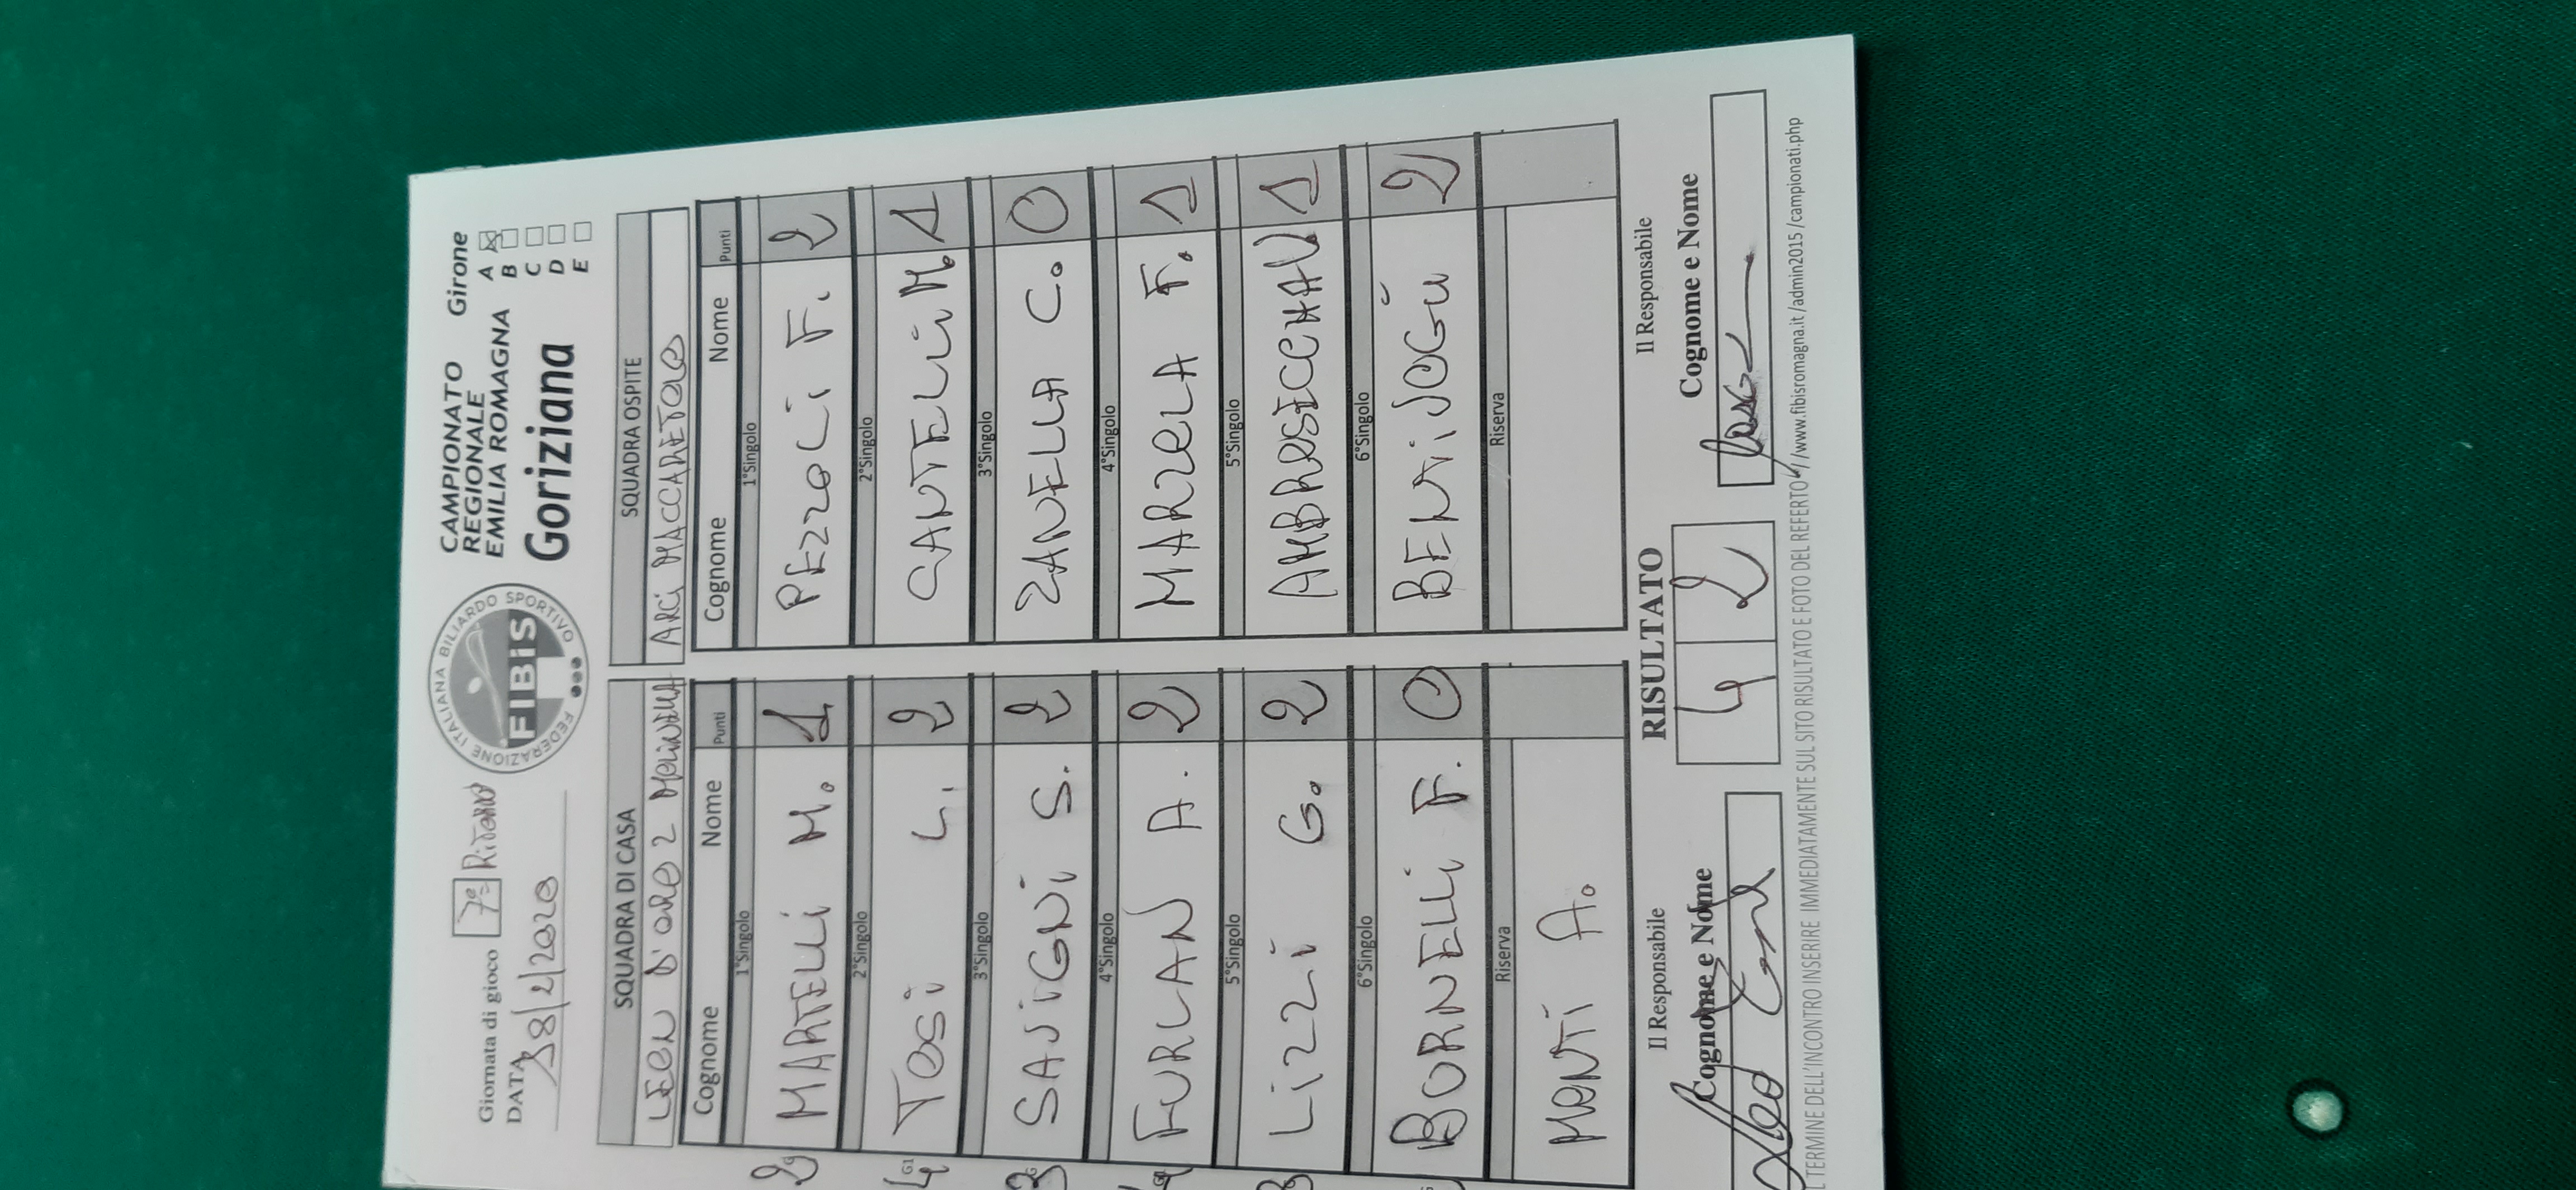 Giornata di gioco 7° RITORNO
DATA 18/2/2020
FEDERAZIONE ITALIANA BILIARDO SPORTIVO
FIBiS
CAMPIONATO
REGIONALE
EMILIA ROMAGNA
Goriziana
Girone
A
B
C
D
E
SQUADRA DI CASA
LEON D'ORO 2 MOLINELLA
Cognome Nome Punti
1°Singolo
MARTELLI M. 1
2°Singolo
TOSI L. 2
3°Singolo
SAVIGNI S. 2
4°Singolo
FURLAN A. 2
5°Singolo
LIZZI G. 2
6°Singolo
BORNELLI F. 0
Riserva
MONTI A.
SQUADRA OSPITE
ARCI MACCARETOLO
Cognome Nome Punti
1°Singolo
PEZZOLI F. 2
2°Singolo
CANTELLI M. 1
3°Singolo
ZANELLA C. 0
4°Singolo
MARZOLA F. 1
5°Singolo
1
6°Singolo
2
Riserva
Il Responsabile
Cognome e Nome
RISULTATO
4 2
Il Responsabile
Cognome e Nome
L TERMINE DELL'INCONTRO INSERIRE IMMEDIATAMENTE SUL SITO RISULTATO E FOTO DEL REFERTO //www.fibisromagna.it/admin2015/campionati.php